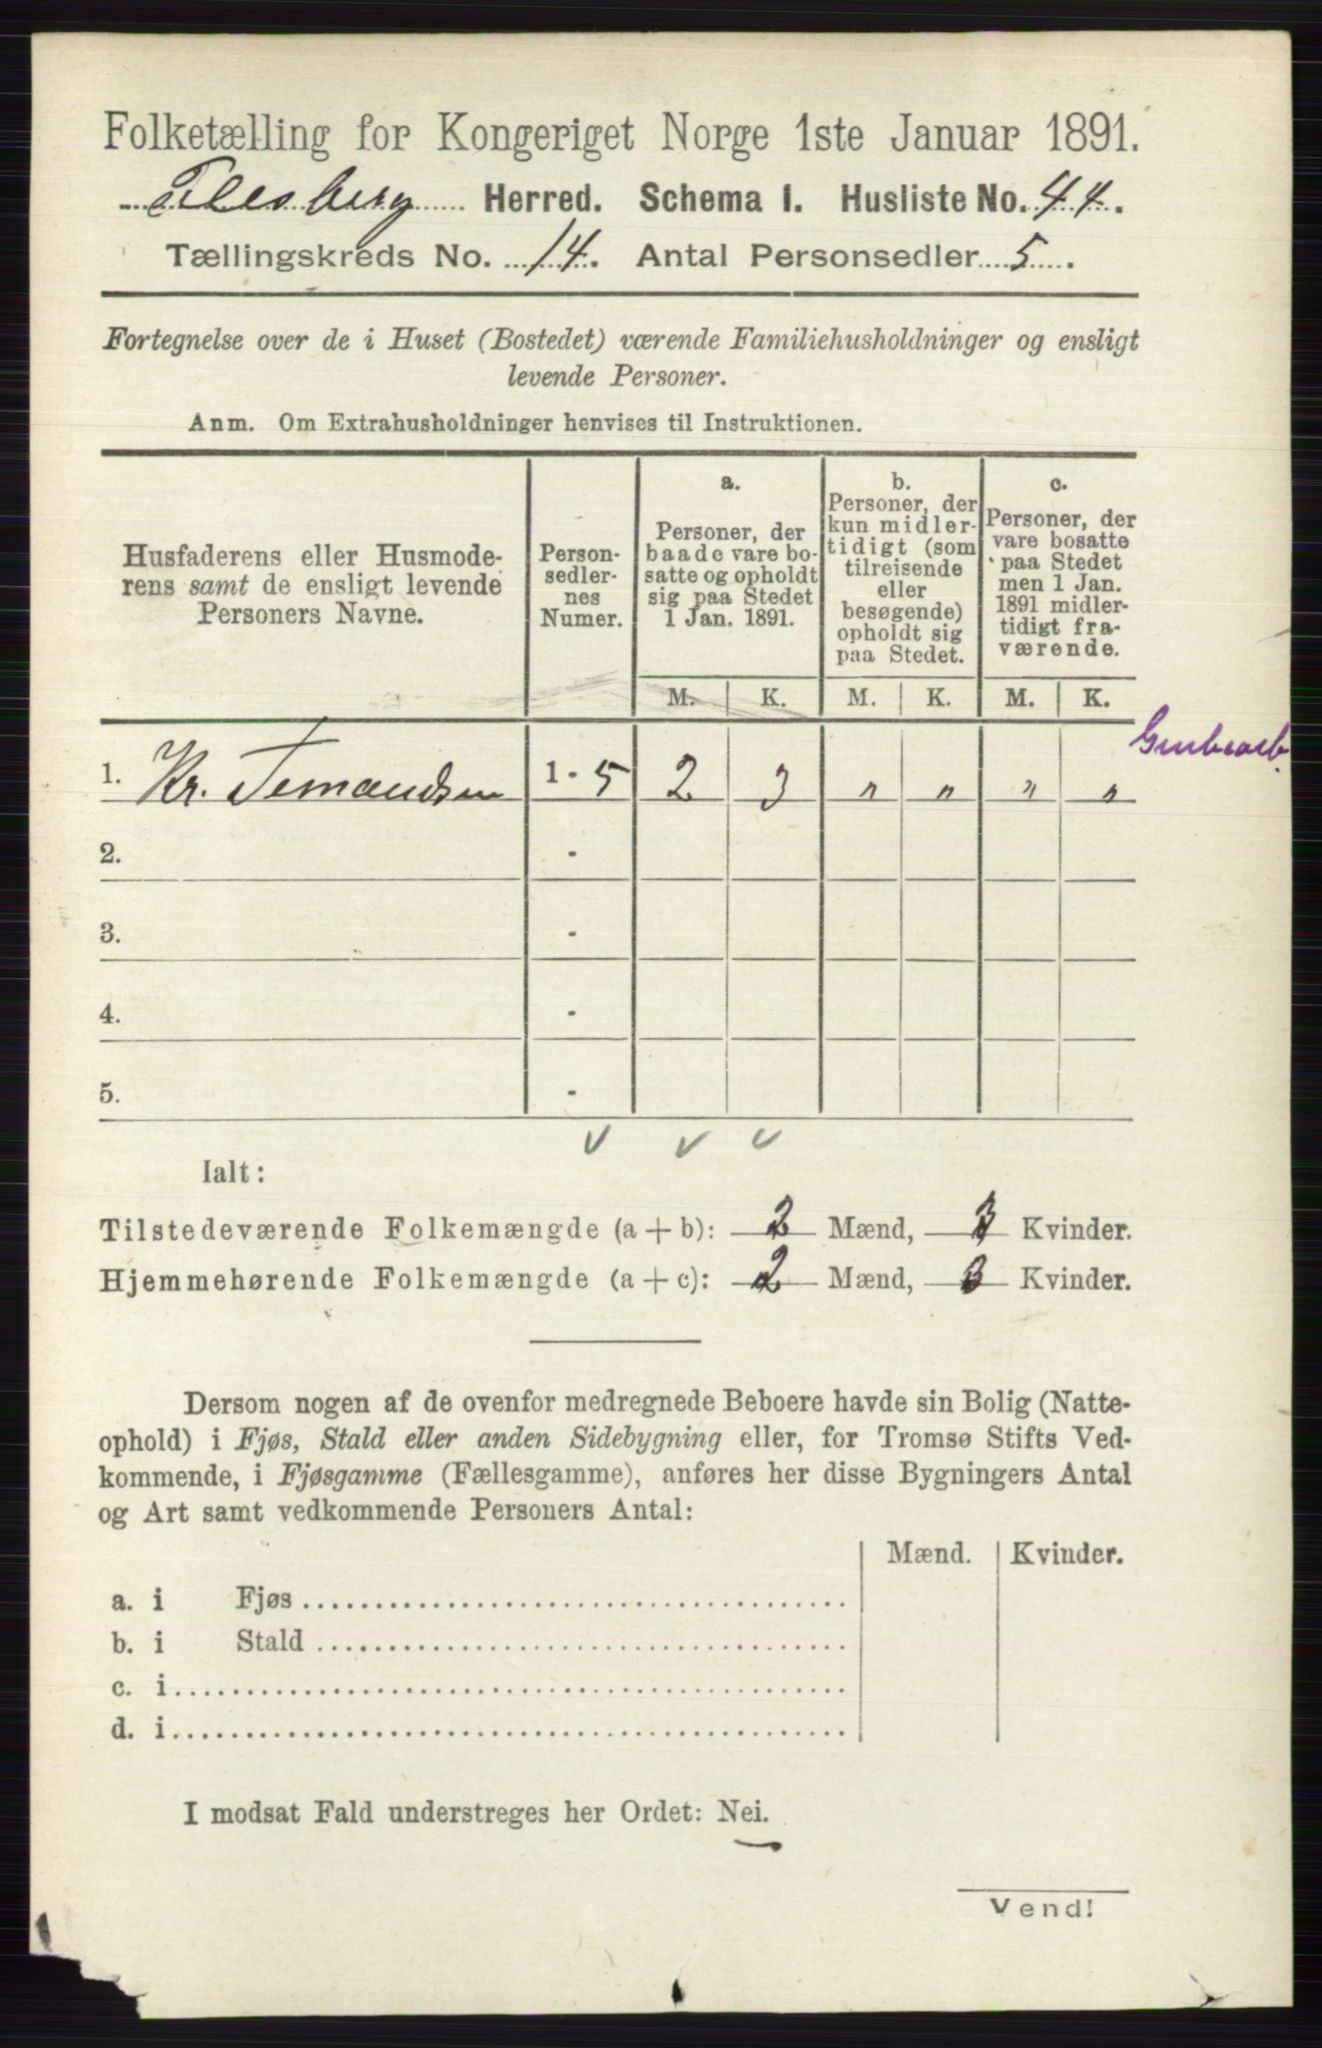 Folketælling for Kongeriget Norge 1ste Januar 1891.
Flesberg Herred. Schema I. Husliste No. 44.
Tællingskreds No. 14. Antal Personsedler 5.
Fortegnelse over de i Huset (Bostedet) værende Familiehusholdninger og ensligt
levende Personer.
Anm. Om Extrahusholdninger henvises til Instruktionen.
Husfaderens eller Husmode-
rens samt de ensligt levende
Personers Navne.
Person-
sedler-
nes
Numer.
a.
Personer, der
baade vare bo-
satte og opholdt
sig paa Stedet
1 Jan. 1891.
b.
Personer, der
kun midler-
tidigt (som
tilreisende
eller
besøgende)
opholdt sig
paa Stedet.
c.
Personer, der
vare bosatte
paa Stedet
men 1 Jan.
1891 midler-
tidigt fra-
værende.
M. K. M. K. M. K.
1. Kr. 1 - 5 2 3 " " " "
2. -
3. -
4. -
5. -
Ialt:
Tilstedeværende Folkemængde (a + b): 2 Mænd, 3 Kvinder.
Hjemmehørende Folkemængde (a + c): 2 Mænd, 3 Kvinder.
Dersom nogen af de ovenfor medregnede Beboere havde sin Bolig (Natte-
ophold) i Fjøs, Stald eller anden Sidebygning eller, for Tromsø Stifts Ved-
kommende, i Fjøsgamme (Fællesgamme), anføres her disse Bygningers Antal
og Art samt vedkommende Personers Antal:
Mænd. Kvinder.
a. i Fjøs
b. i Stald
c. i
d. i
I modsat Fald understreges her Ordet: Nei.
Vend!